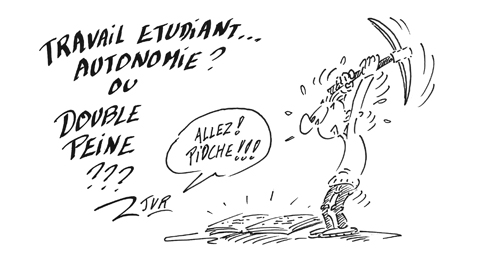 TRAVAIL ETUDIANT...
AUTONOMIE?
OU
DOUBLE
PEINE
???
ALLEZ!
PIOCHE!!!
2 JVR